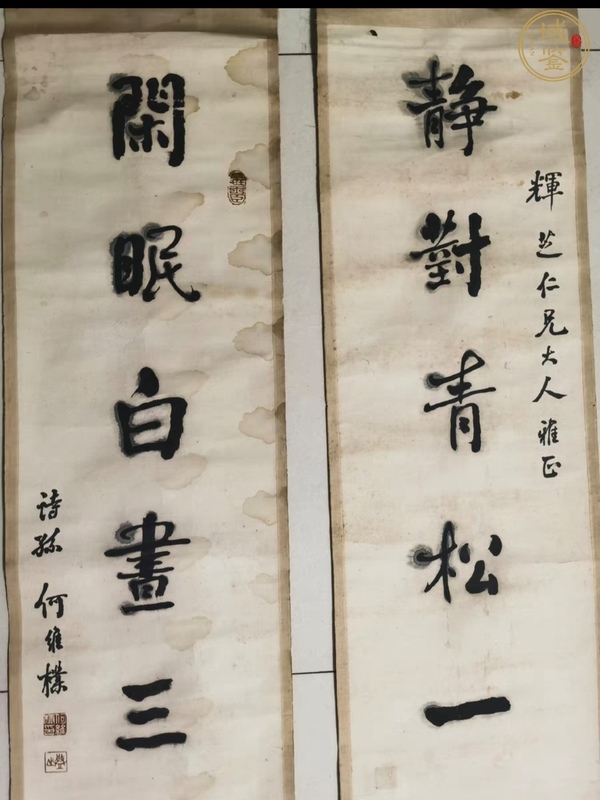 輝芝仁兄大人雅正
靜對青松一
閑眠白晝三
詩孫何維樸